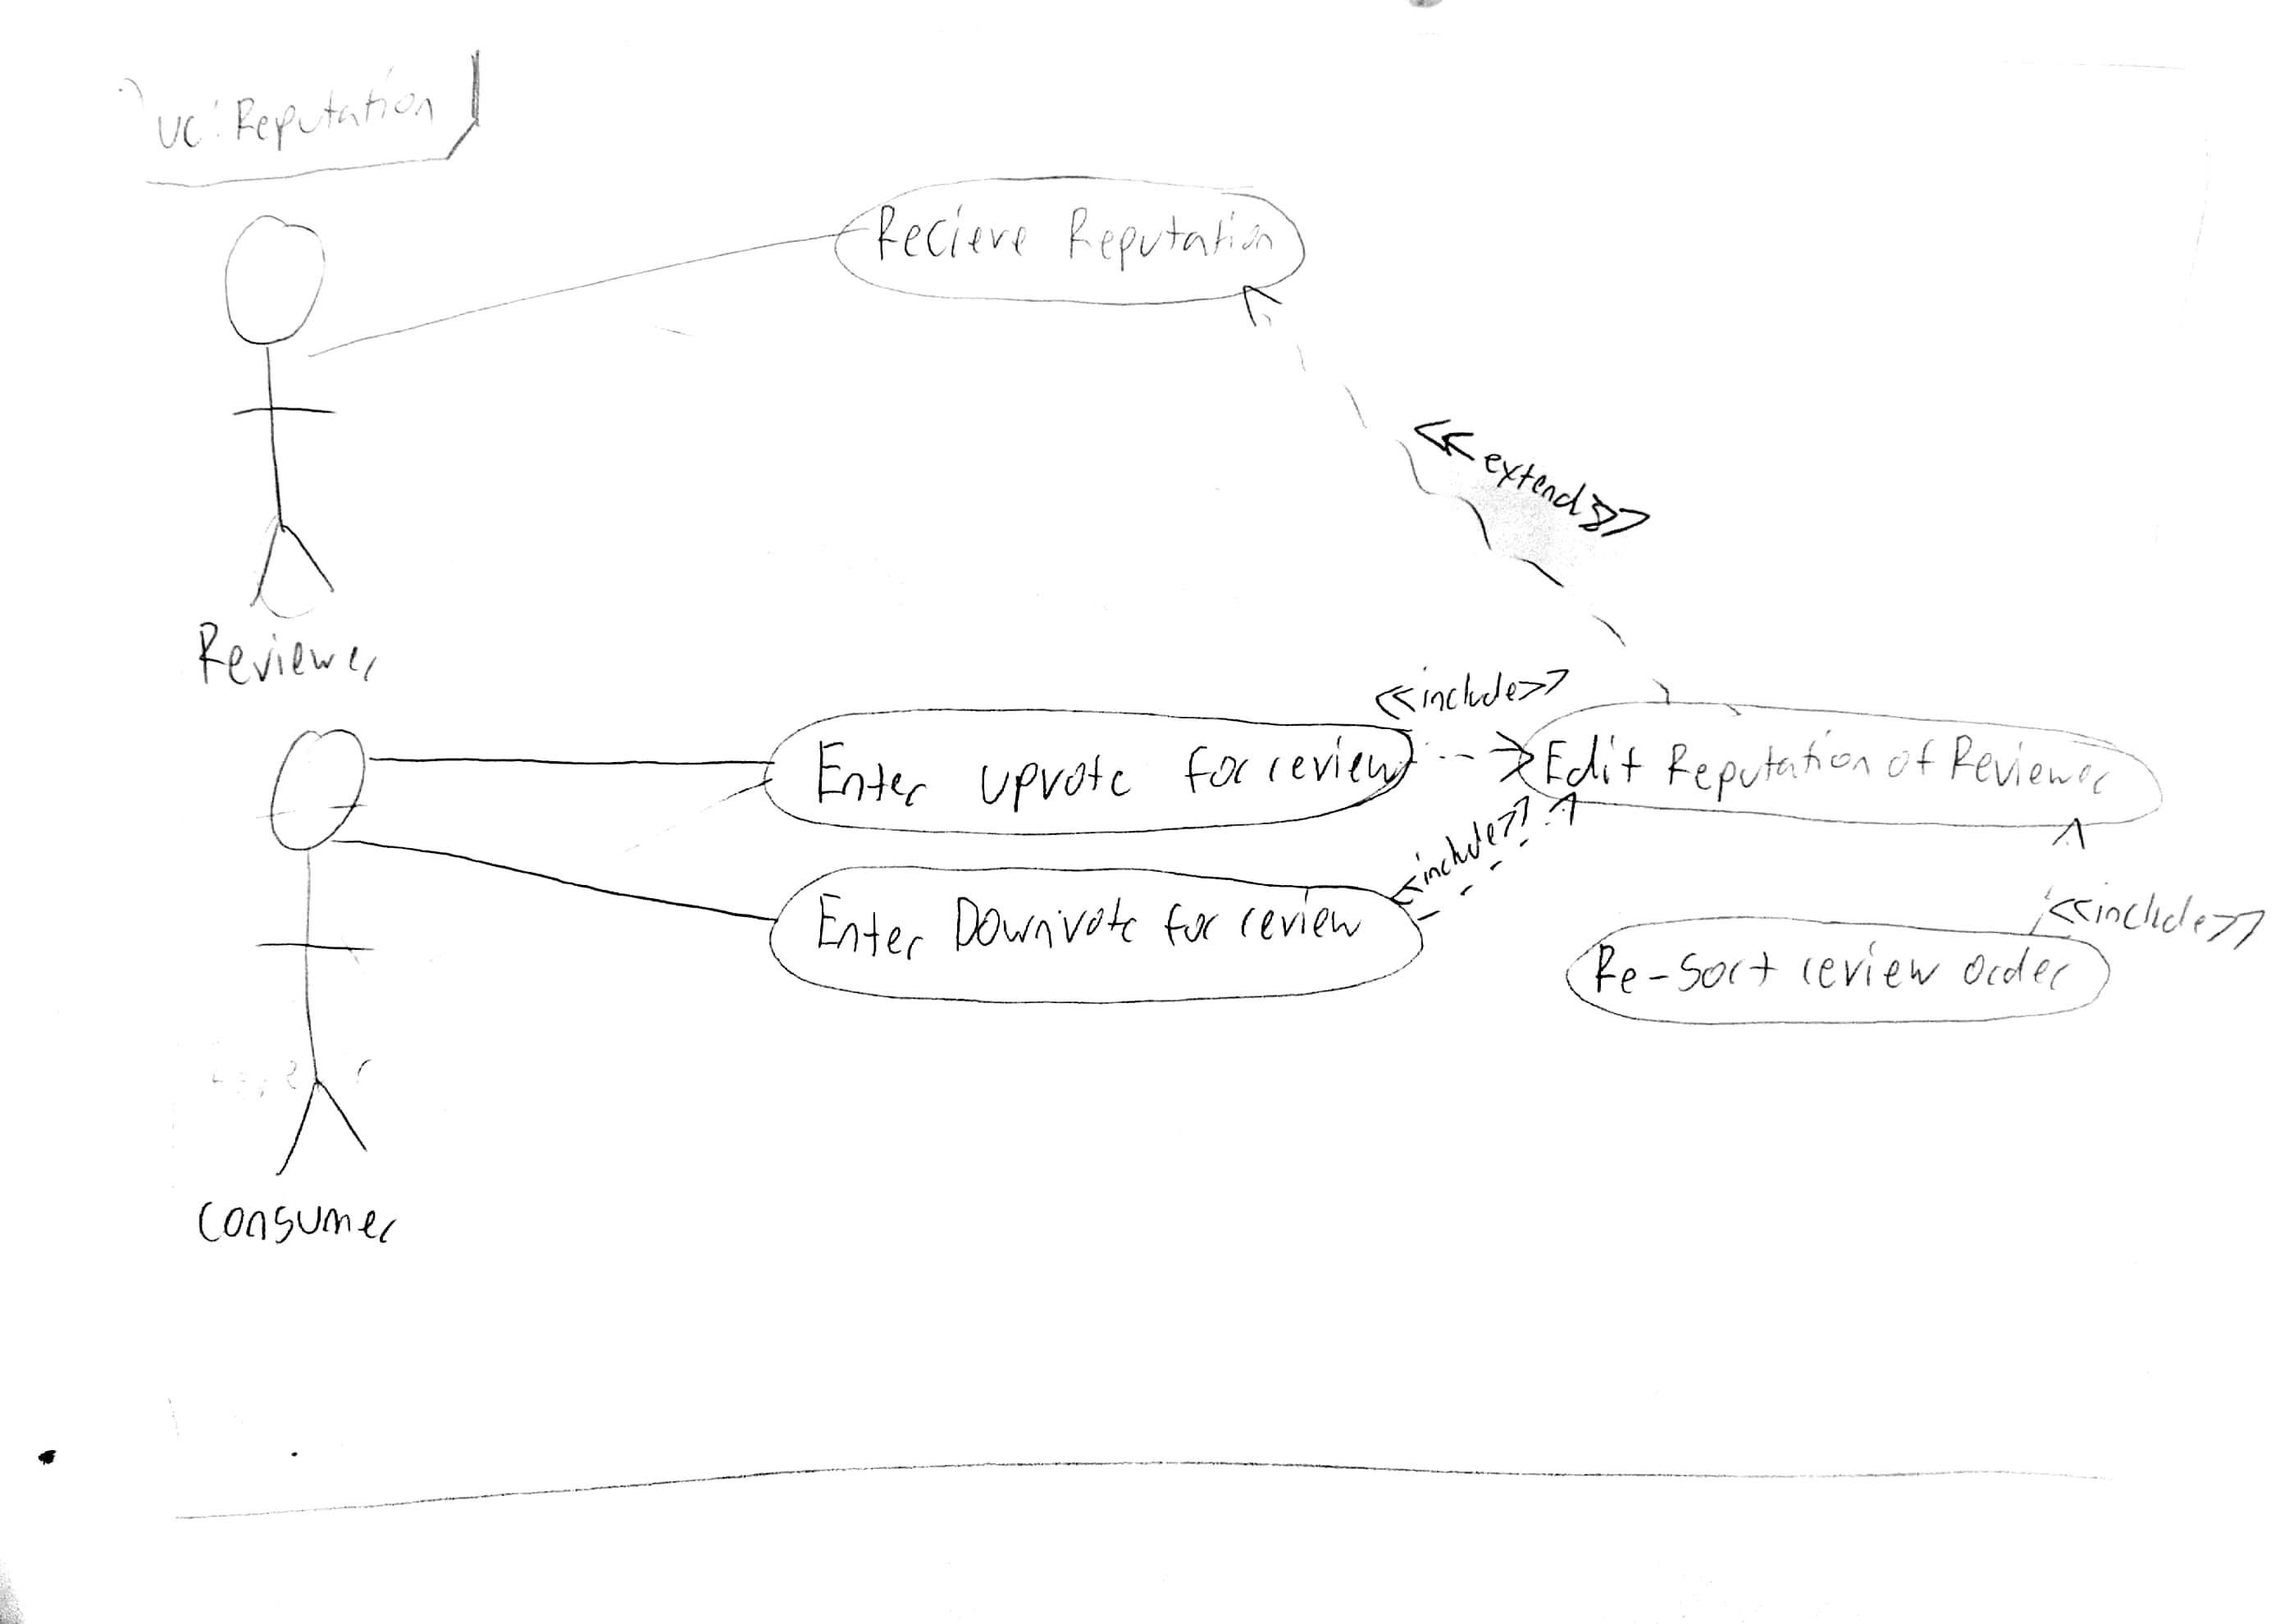 uc: Reputation
Recieve Reputation
<<extend>>
Reviewer
<<include>>
Enter upvote for review
Edit Reputation of Reviewer
<<include>>
Enter Downvote for review
<<include>>
Re-sort review order
Consumer